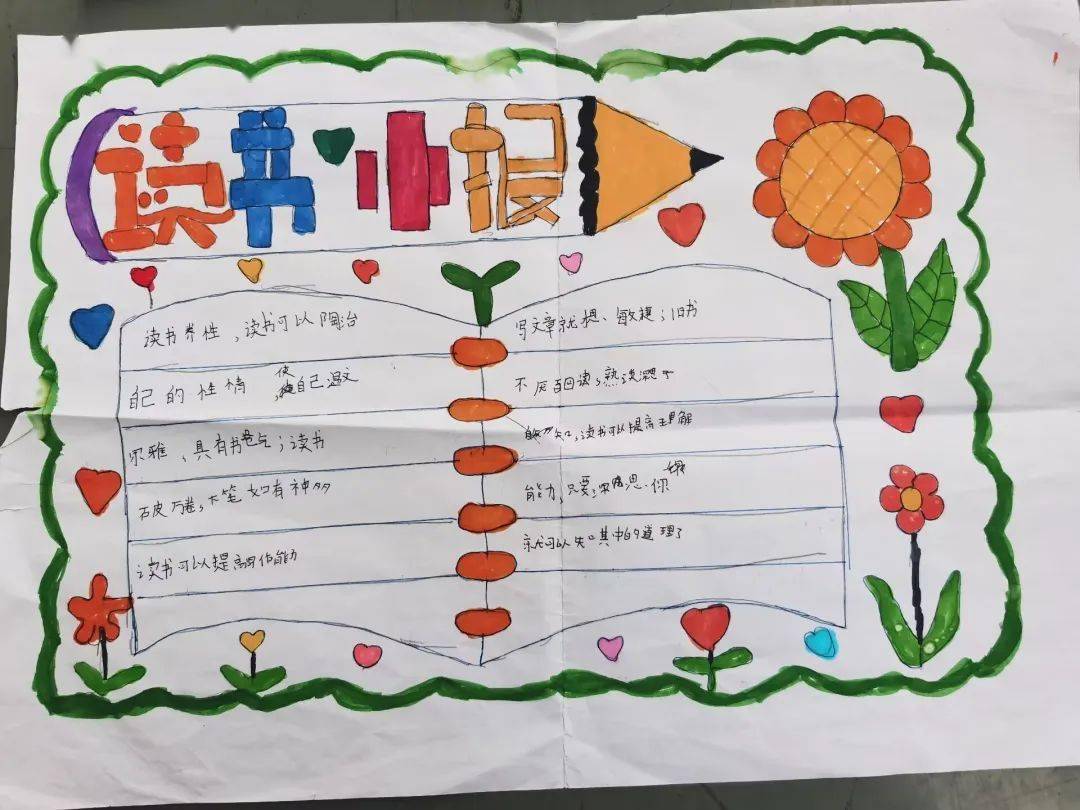 读书小报
读书养性，读书可以陶冶
自己的性情，使自己温文
尔雅，具有书卷气；读书
破万卷，下笔如有神，多
读书可以提高写作能力
写文章就、敏捷；旧书
不厌百回读，熟读
知，读书可以提高理解
能力，只要思，你
就可以知其中的道理了